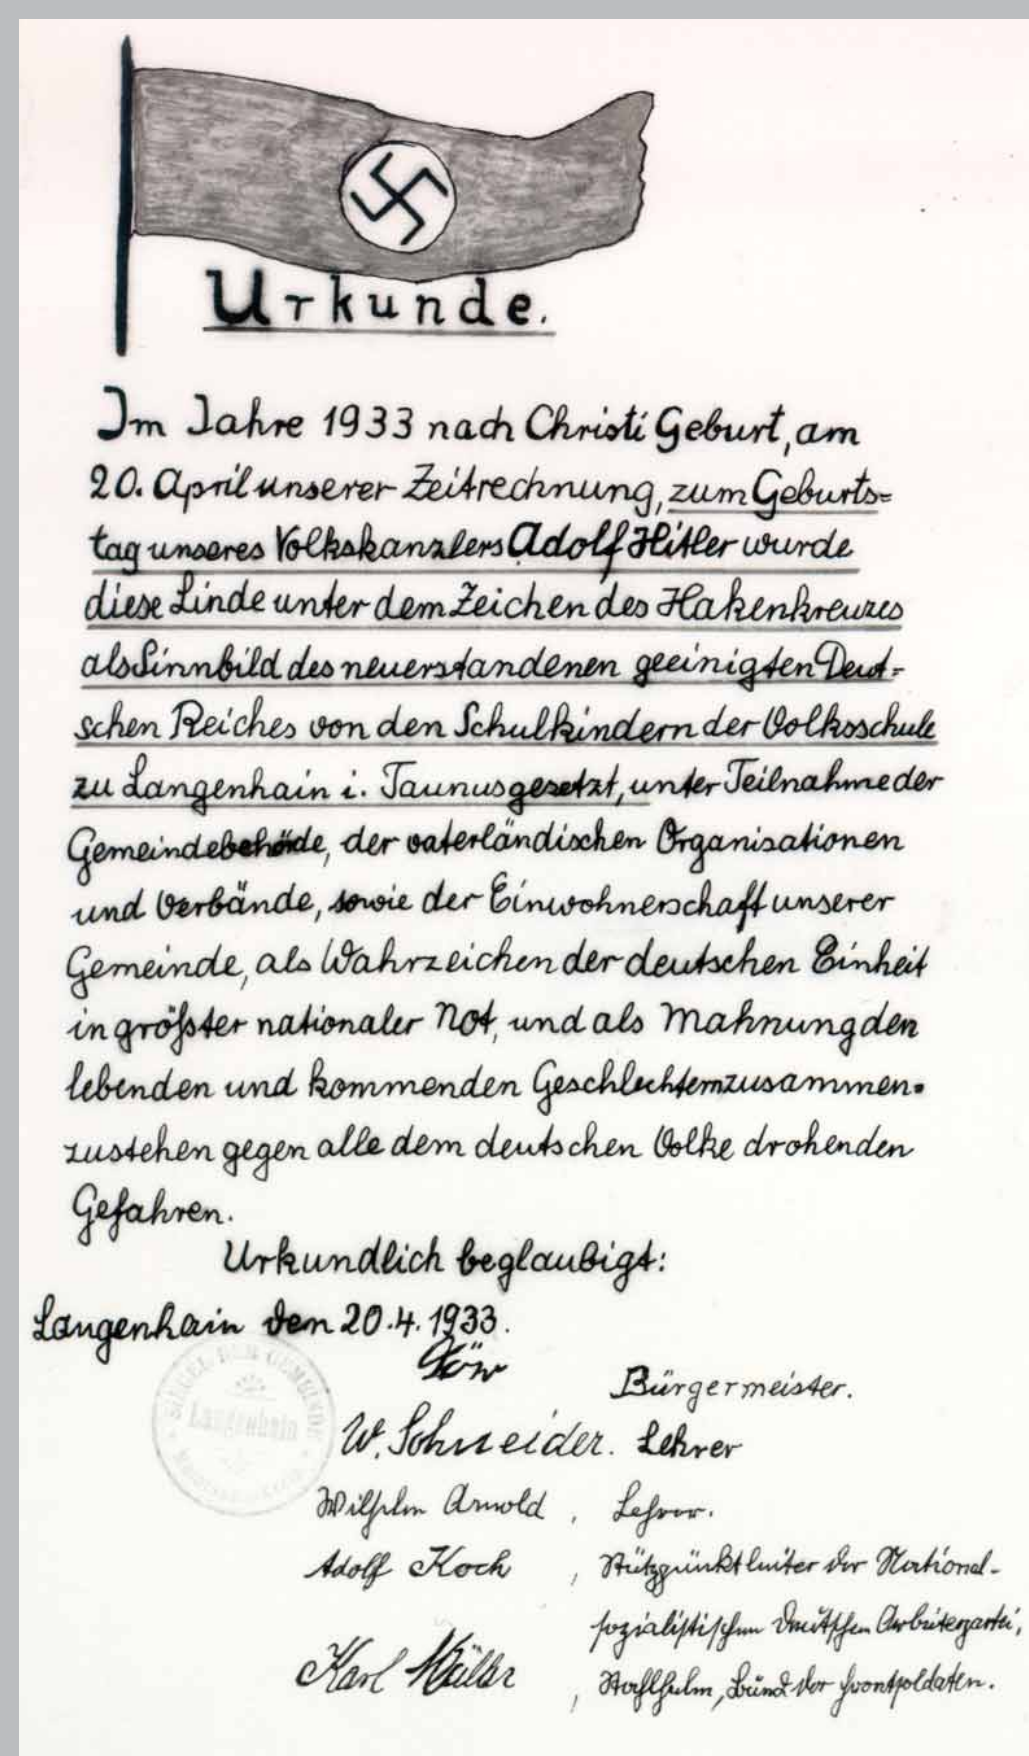 Urkunde.
Im Jahre 1933 nach Christi Geburt, am
20. April unserer Zeitrechnung, zum Geburts=
tag unseres Volkskanzlers Adolf Hitler wurde
diese Linde unter dem Zeichen des Hakenkreuzes
als Sinnbild des neuerstandenen geeinigten Deut-
schen Reiches von den Schulkindern der Volksschule
zu Langenhain i. Taunus gesetzt, unter Teilnahme der
Gemeindebehörde, der vaterländischen Organisationen
und Verbände, sowie der Einwohnerschaft unserer
Gemeinde, als Wahrzeichen der deutschen Einheit
in größter nationaler Not, und als Mahnung den
lebenden und kommenden Geschlechtern zusammen-
zustehen gegen alle dem deutschen Volke drohenden
Gefahren.
Urkundlich beglaubigt:
Langenhain den 20.4.1933.
Bürgermeister.
SIEGEL DER GEMEINDE
Langenhain
W. Schneider. Lehrer
Wilhelm Arnold, Lehrer.
Adolf Koch, Stützpunktleiter der National-
sozialistischen Deutschen Arbeiterpartei,
Karl Müller, Stahlhelm, Bund der Frontsoldaten.